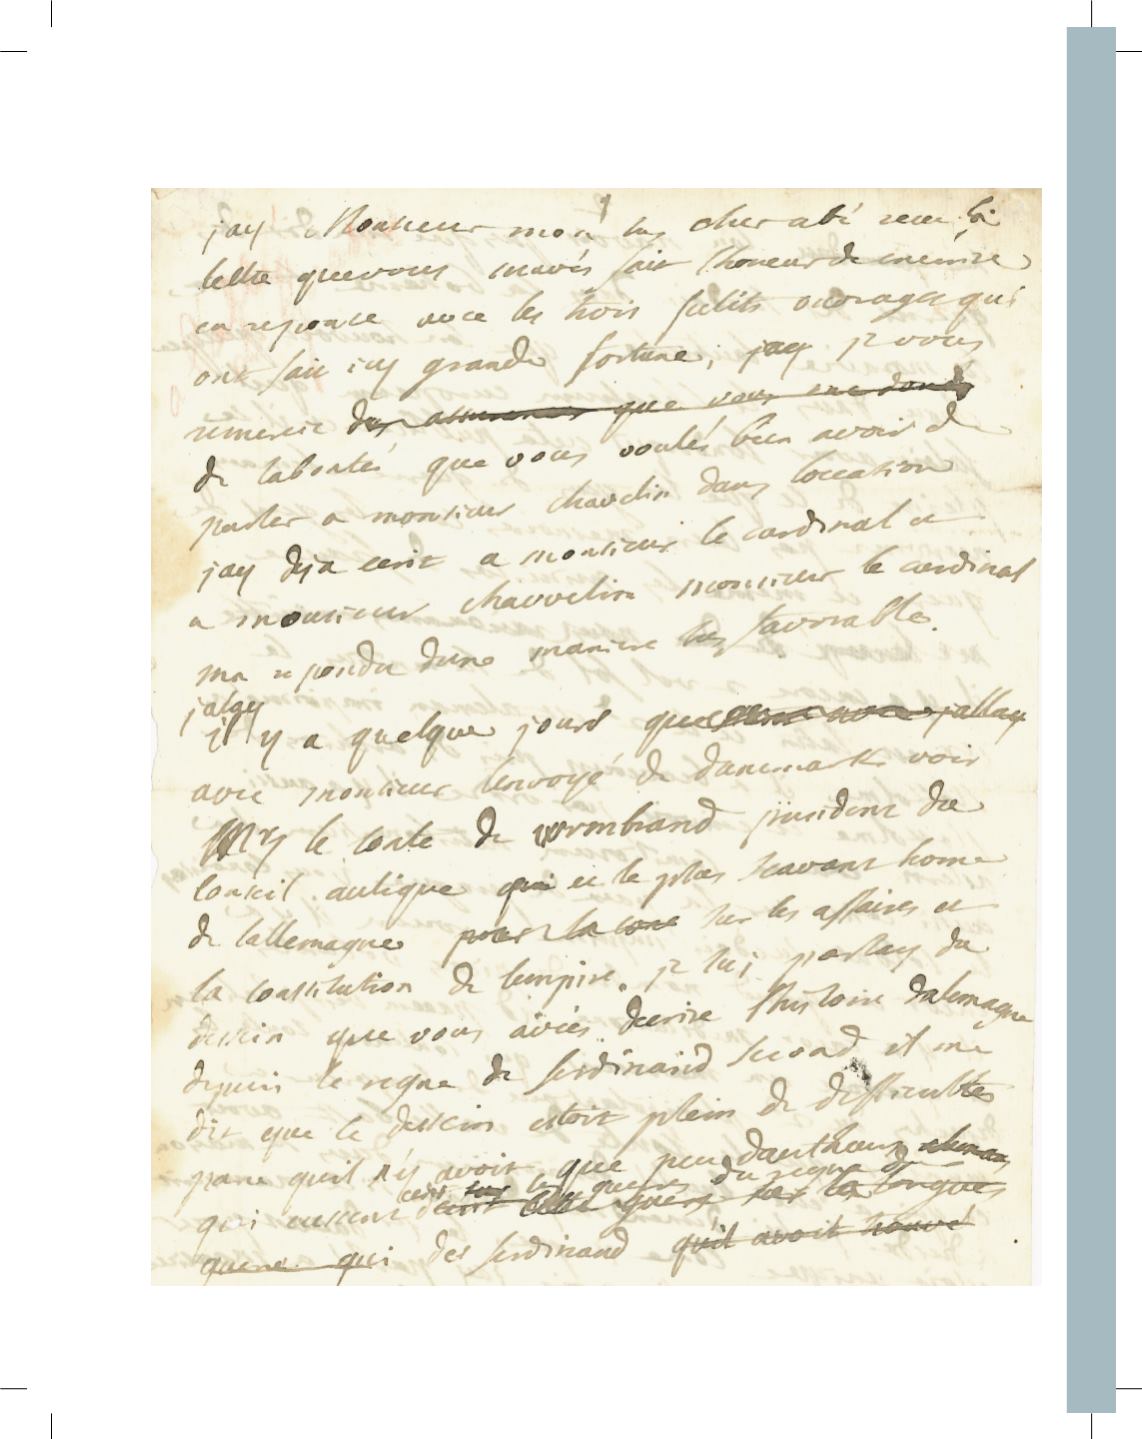 jay lhonneur mon tres cher abé receu la
lettre que vous mavés fait lhoneur de mecrire
en reponce avec les trois petits ouvrages qui
ont fait icy grande fortune, jay je vous
remercie des assurances que vous me donés
de la bontés que vous voulés bien avoir de
parler a monsieur chauvelin dans loccasion
jay deja ecrit a monsieur le cardinal et
a monsieur chauvelin monsieur le cardinal
ma repondu dune maniere tres favorable.
jalay
il y a quelque jours que jallay
avec monsieur lenvoyé de danemark voir
Mr le conte de wrmbrand president du
conseil aulique qui est le plus scavant home
de lallemagne pour la sur les affaires et
la constitution de lempire. je lui parlay du
dessein que vous aviés decrire lhistoire dalemagne
depuis le regne de ferdinand second il me
dit que le dessein estoit plein de difficultés
parce quil ny avoit que peu dautheurs
ecrit sur les guerres du regne de
qui eussent decrit cette guerre sur les longues
guerre qui des ferdinand quil avoit trouvé